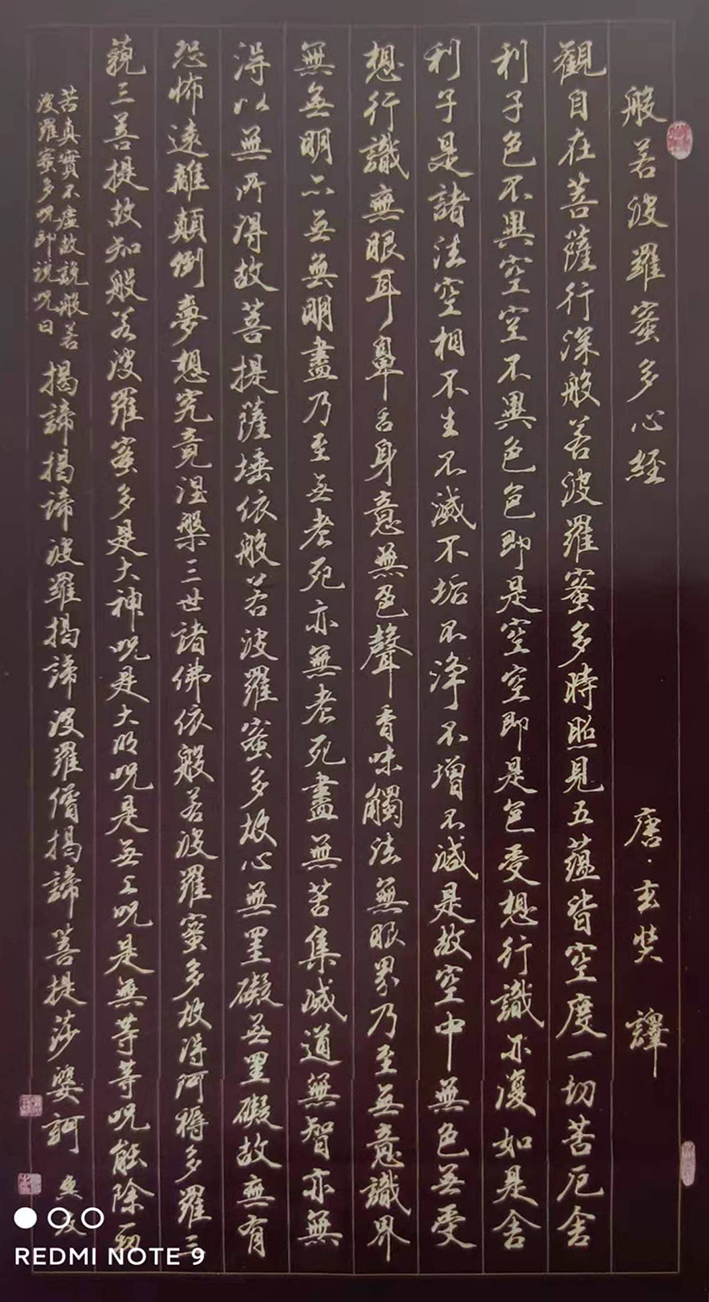 般若波羅蜜多心經 唐·玄奘 譯
觀自在菩薩行深般若波羅蜜多時照見五蘊皆空度一切苦厄舍
利子色不異空空不異色色即是空空即是色受想行識亦復如是舍
利子是諸法空相不生不滅不垢不淨不增不減是故空中無色无受
想行識無眼耳鼻舌身意無色聲香味觸法無眼界乃至无意識界
無無明亦无無明盡乃至无老死亦無老死盡無苦集滅道無智亦無
得以無所得故菩提薩埵依般若波羅蜜多故心無罣礙无罣礙故無有
恐怖遠離顛倒夢想究竟涅槃三世諸佛依般若波羅蜜多故得阿耨多羅三
藐三菩提故知般若波羅蜜多是大神呪是大明呪是无上呪是無等等呪能除一切
苦真實不虛故說般若
波羅蜜多呪即說呪曰
揭諦揭諦波羅揭諦波羅僧揭諦菩提莎婆訶
REDMI NOTE 9